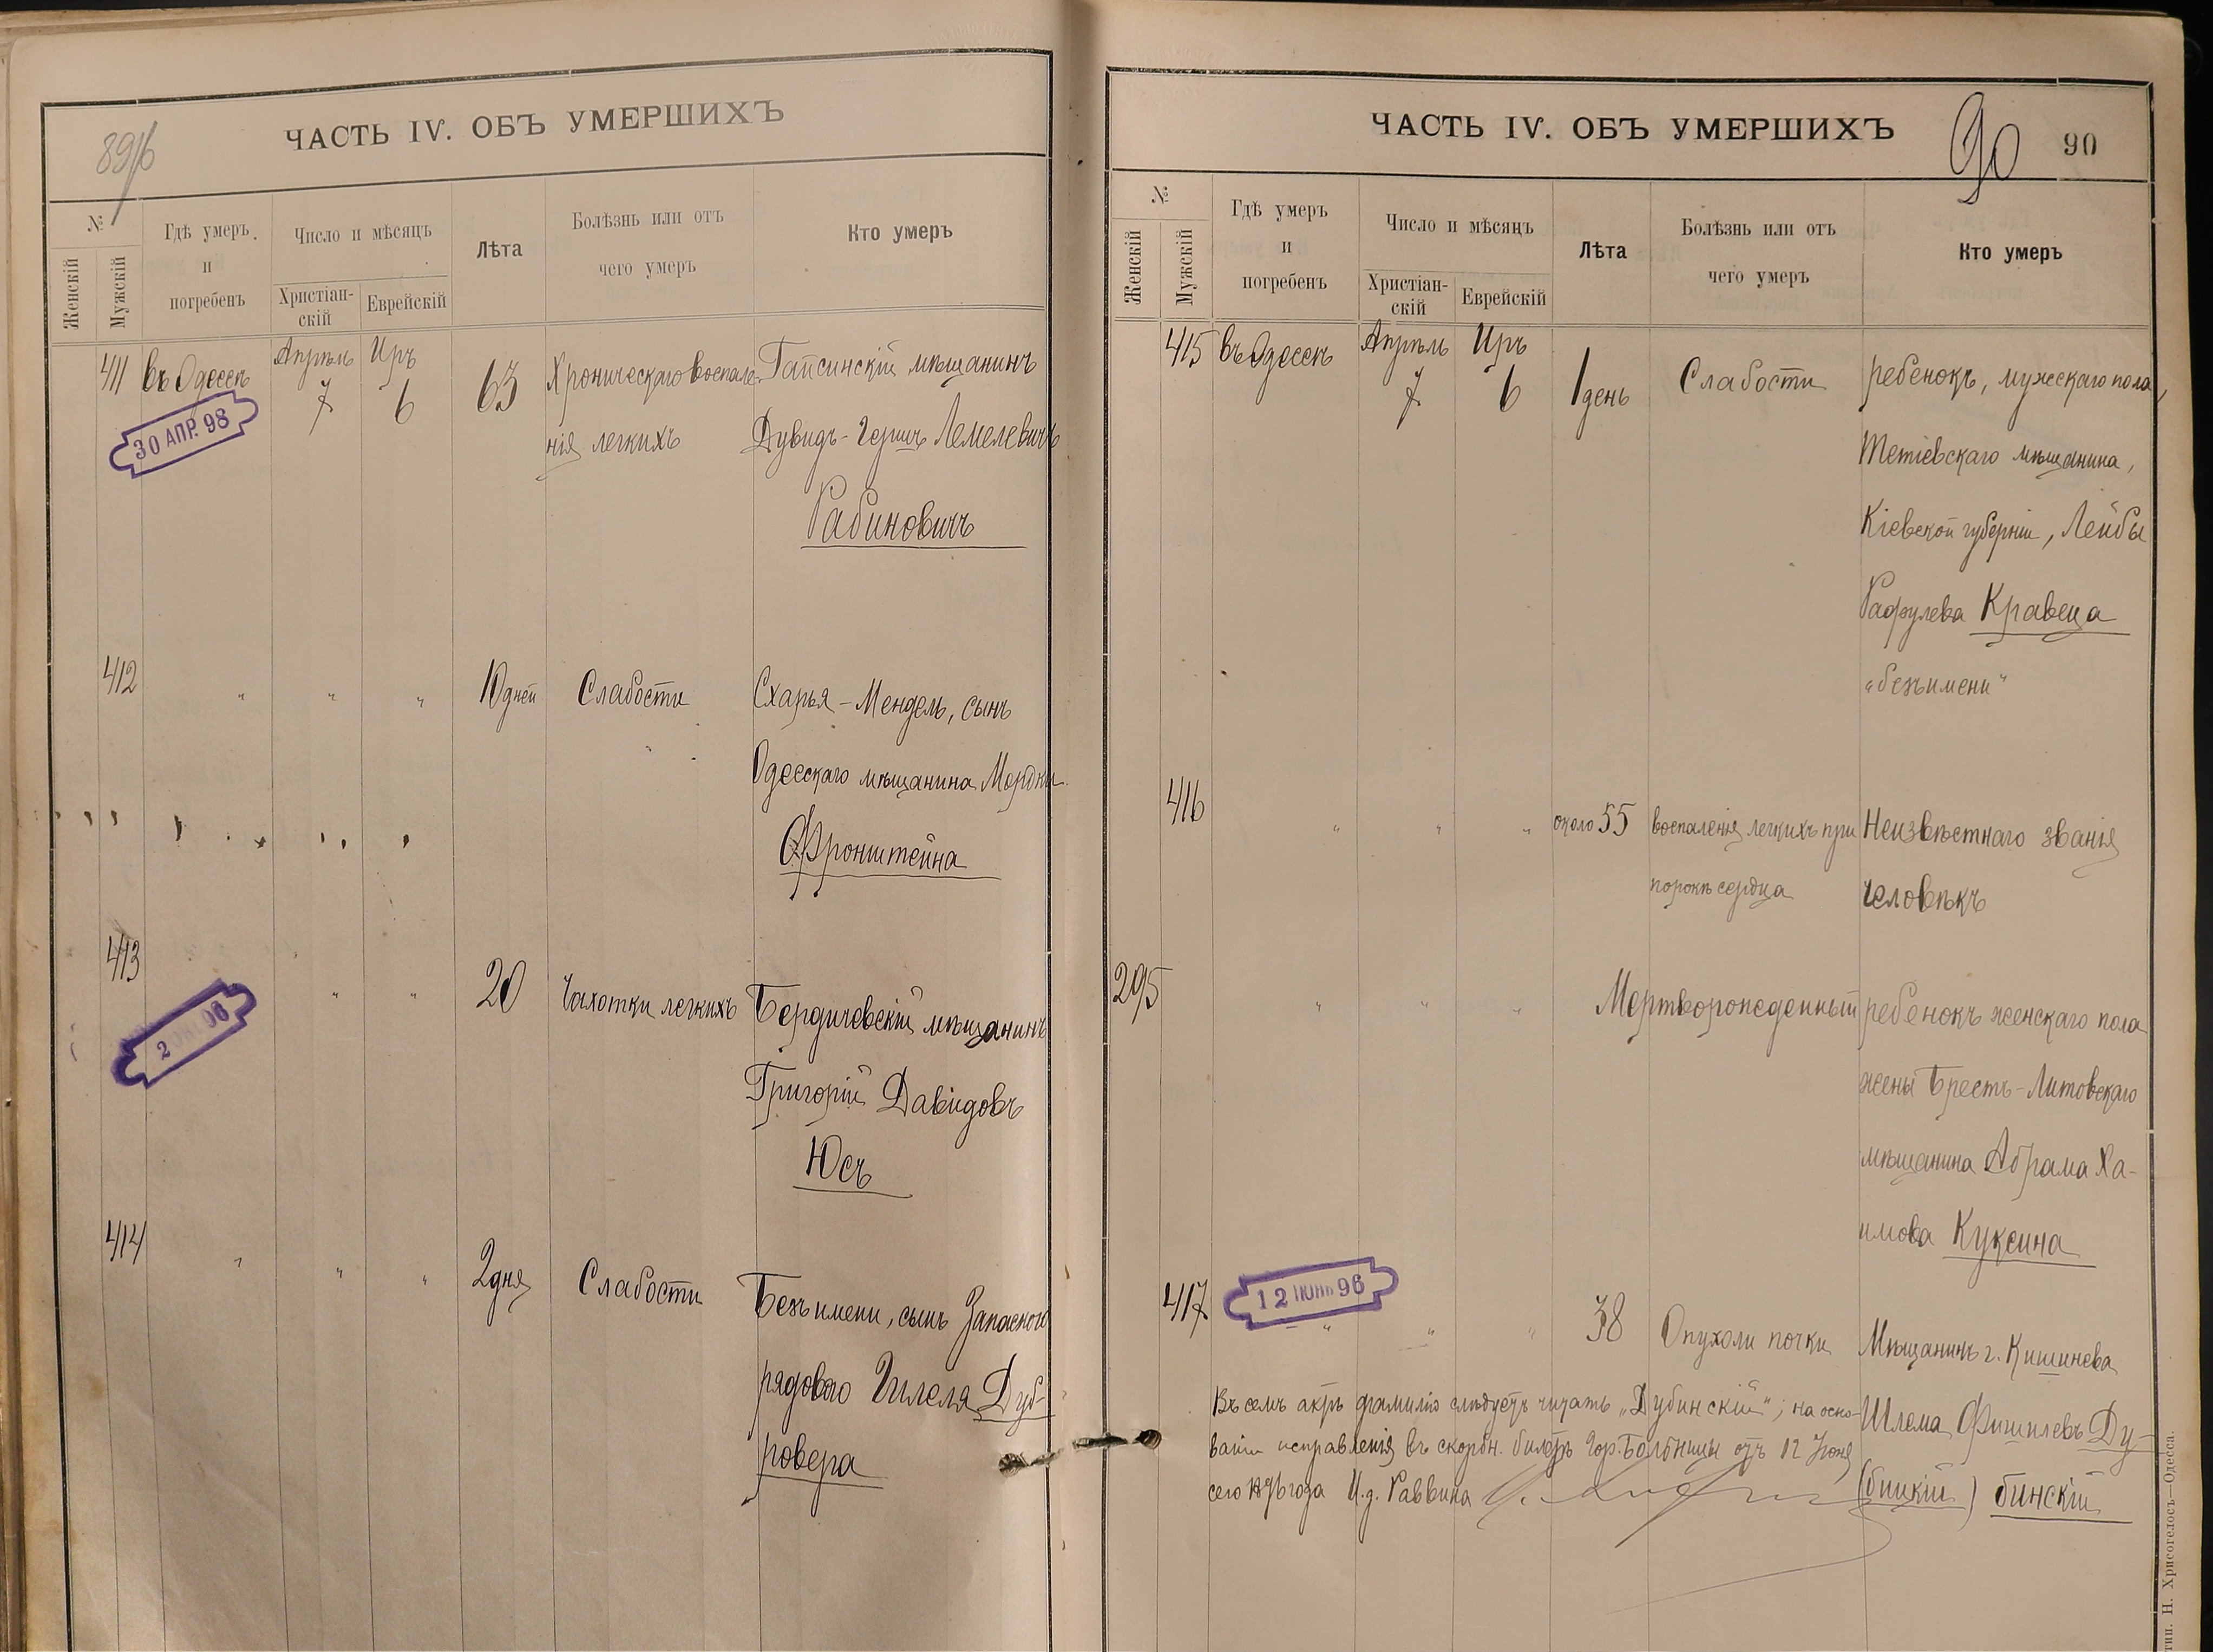 ЧАСТЬ IV. ОБЪ УМЕРШИХЪ
№
Женскій
Мужскій
Гдѣ умеръ
и
погребенъ
Число и мѣсяцъ
Христіан-
скій
Еврейскій
Лѣта
Болѣзнь или отъ
чего умеръ
Кто умеръ
411 въ Одессѣ Апрѣль 7 Иръ 6 63 Хроническаго воспале- Гайсинскій мѣщанинъ
30 АПР. 98
нія легкихъ Дувидъ-Гершъ Лемелевичъ
Рабиновичъ
412 " " " 10 дней Слабости Схарья-Мендель, сынъ
Одесскаго мѣщанина Мордки
Фронштейна
413 " " 20 Чахотки легкихъ Бердичевскій мѣщанинъ
Григорій Давидовъ
Юсъ
414 " " " 2 дня Слабости Безъ имени, сынъ Запасного
рядового Гилеля Дуб-
ровера
ЧАСТЬ IV. ОБЪ УМЕРШИХЪ
90
90
№
Женскій
Мужскій
Гдѣ умеръ
и
погребенъ
Число и мѣсяцъ
Христіан-
скій
Еврейскій
Лѣта
Болѣзнь или отъ
чего умеръ
Кто умеръ
415 въ Одессѣ Апрѣль 7 Иръ 6 1 день Слабости ребенокъ, мужескаго пола,
Тетіевскаго мѣщанина,
Кіевской губерніи, Лейбы
Рафулева Кравеца
"безъ имени"
416 " " " около 55 воспаленія легкихъ при Неизвѣстнаго званія
порокѣ сердца человѣкъ
295 " " " Мертворожденный ребенокъ женскаго пола
жены Брестъ-Литовскаго
мѣщанина Абрама Ха-
имова Куксина
417 12 ІЮНЬ 96 " " " 38 Опухоли почки Мѣщанинъ г. Кишинева
Шлема Фишилевъ Ду-
(бицкій) бинскій
Въ семъ актѣ фамилію слѣдуетъ читать „Дубинскій“; на осно-
ваніи исправленія въ скорбн. билетѣ Гор. Больницы отъ 12 Іюня
сего 1896 года И. д. Раввина
тип. Н. Хрисогелосъ—Одесса.